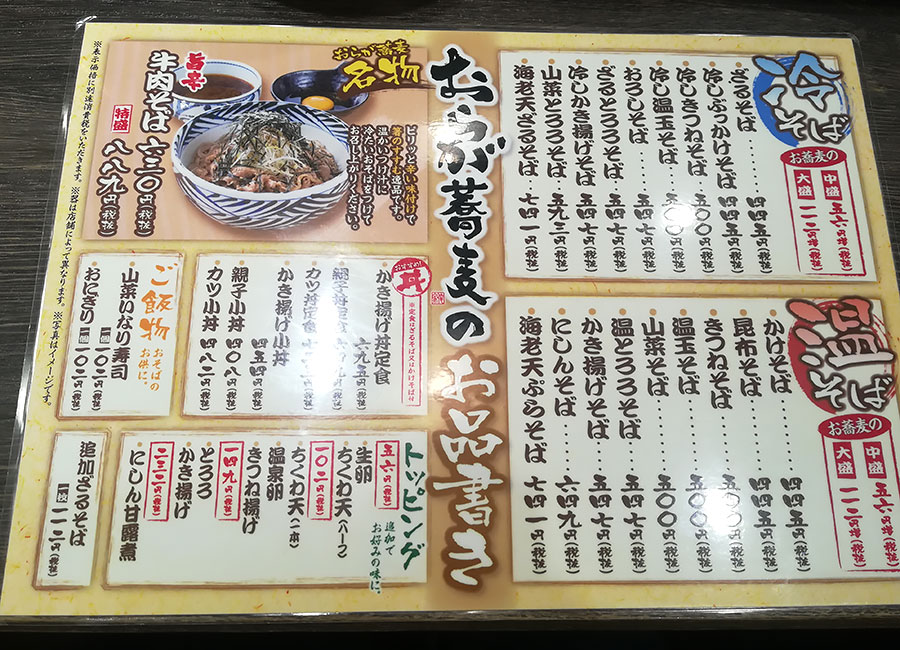 おらが蕎麦のお品書き
冷そば
お蕎麦の
中盛 五六円増(税抜)
大盛 一一二円増(税抜)
ざるそば……四四五円(税抜)
冷しぶっかけそば…四四五円(税抜)
冷しきつねそば…五〇〇円(税抜)
冷し温玉そば…五〇〇円(税抜)
おろしそば……五四七円(税抜)
ざるとろろそば…五四七円(税抜)
冷しかき揚げそば…五四七円(税抜)
山菜とろろそば…五九三円(税抜)
海老天ざるそば…七四一円(税抜)
温そば
お蕎麦の
中盛 五六円増(税抜)
大盛 一一二円増(税抜)
かけそば……四四五円(税抜)
昆布そば……四四五円(税抜)
きつねそば……五〇〇円(税抜)
温玉そば……五〇〇円(税抜)
山菜そば……五〇〇円(税抜)
温とろろそば…五四七円(税抜)
かき揚げそば…五四七円(税抜)
にしんそば……六四九円(税抜)
海老天ぷらそば…七四一円(税抜)
おらが蕎麦
名物
ピリッと辛い味付けで
箸のすすむ逸品です。
温かいつけ汁に
冷たいおそばをつけて
お召し上がりください。
旨辛
牛肉そば 六三〇円(税抜)
特盛 八八九円(税抜)
※表示価格に別途消費税をいただきます。 ※器は店舗によって異なります。 ※写真はイメージです。
おすすめ!
丼
※定食はざるそば又はかけそば付
かき揚げ丼定食
六九五円(税抜)
親子丼定食
カツ丼定食
かき揚げ小丼
四五四円(税抜)
親子小丼 四〇八円(税抜)
カツ小丼 四八二円(税抜)
ご飯物
おそばの
お供に。
山菜いなり寿司
一個 一〇二円(税抜)
おにぎり 一個 一〇二円(税抜)
トッピング
追加で
お好みの味に。
五六円(税抜)
生卵
ちくわ天(ハーフ)
一〇二円(税抜)
ちくわ天(一本)
温泉卵
きつね揚げ
一四九円(税抜)
とろろ
かき揚げ
二三一円(税抜)
にしん甘露煮
追加ざるそば
一枚 一一二円(税抜)